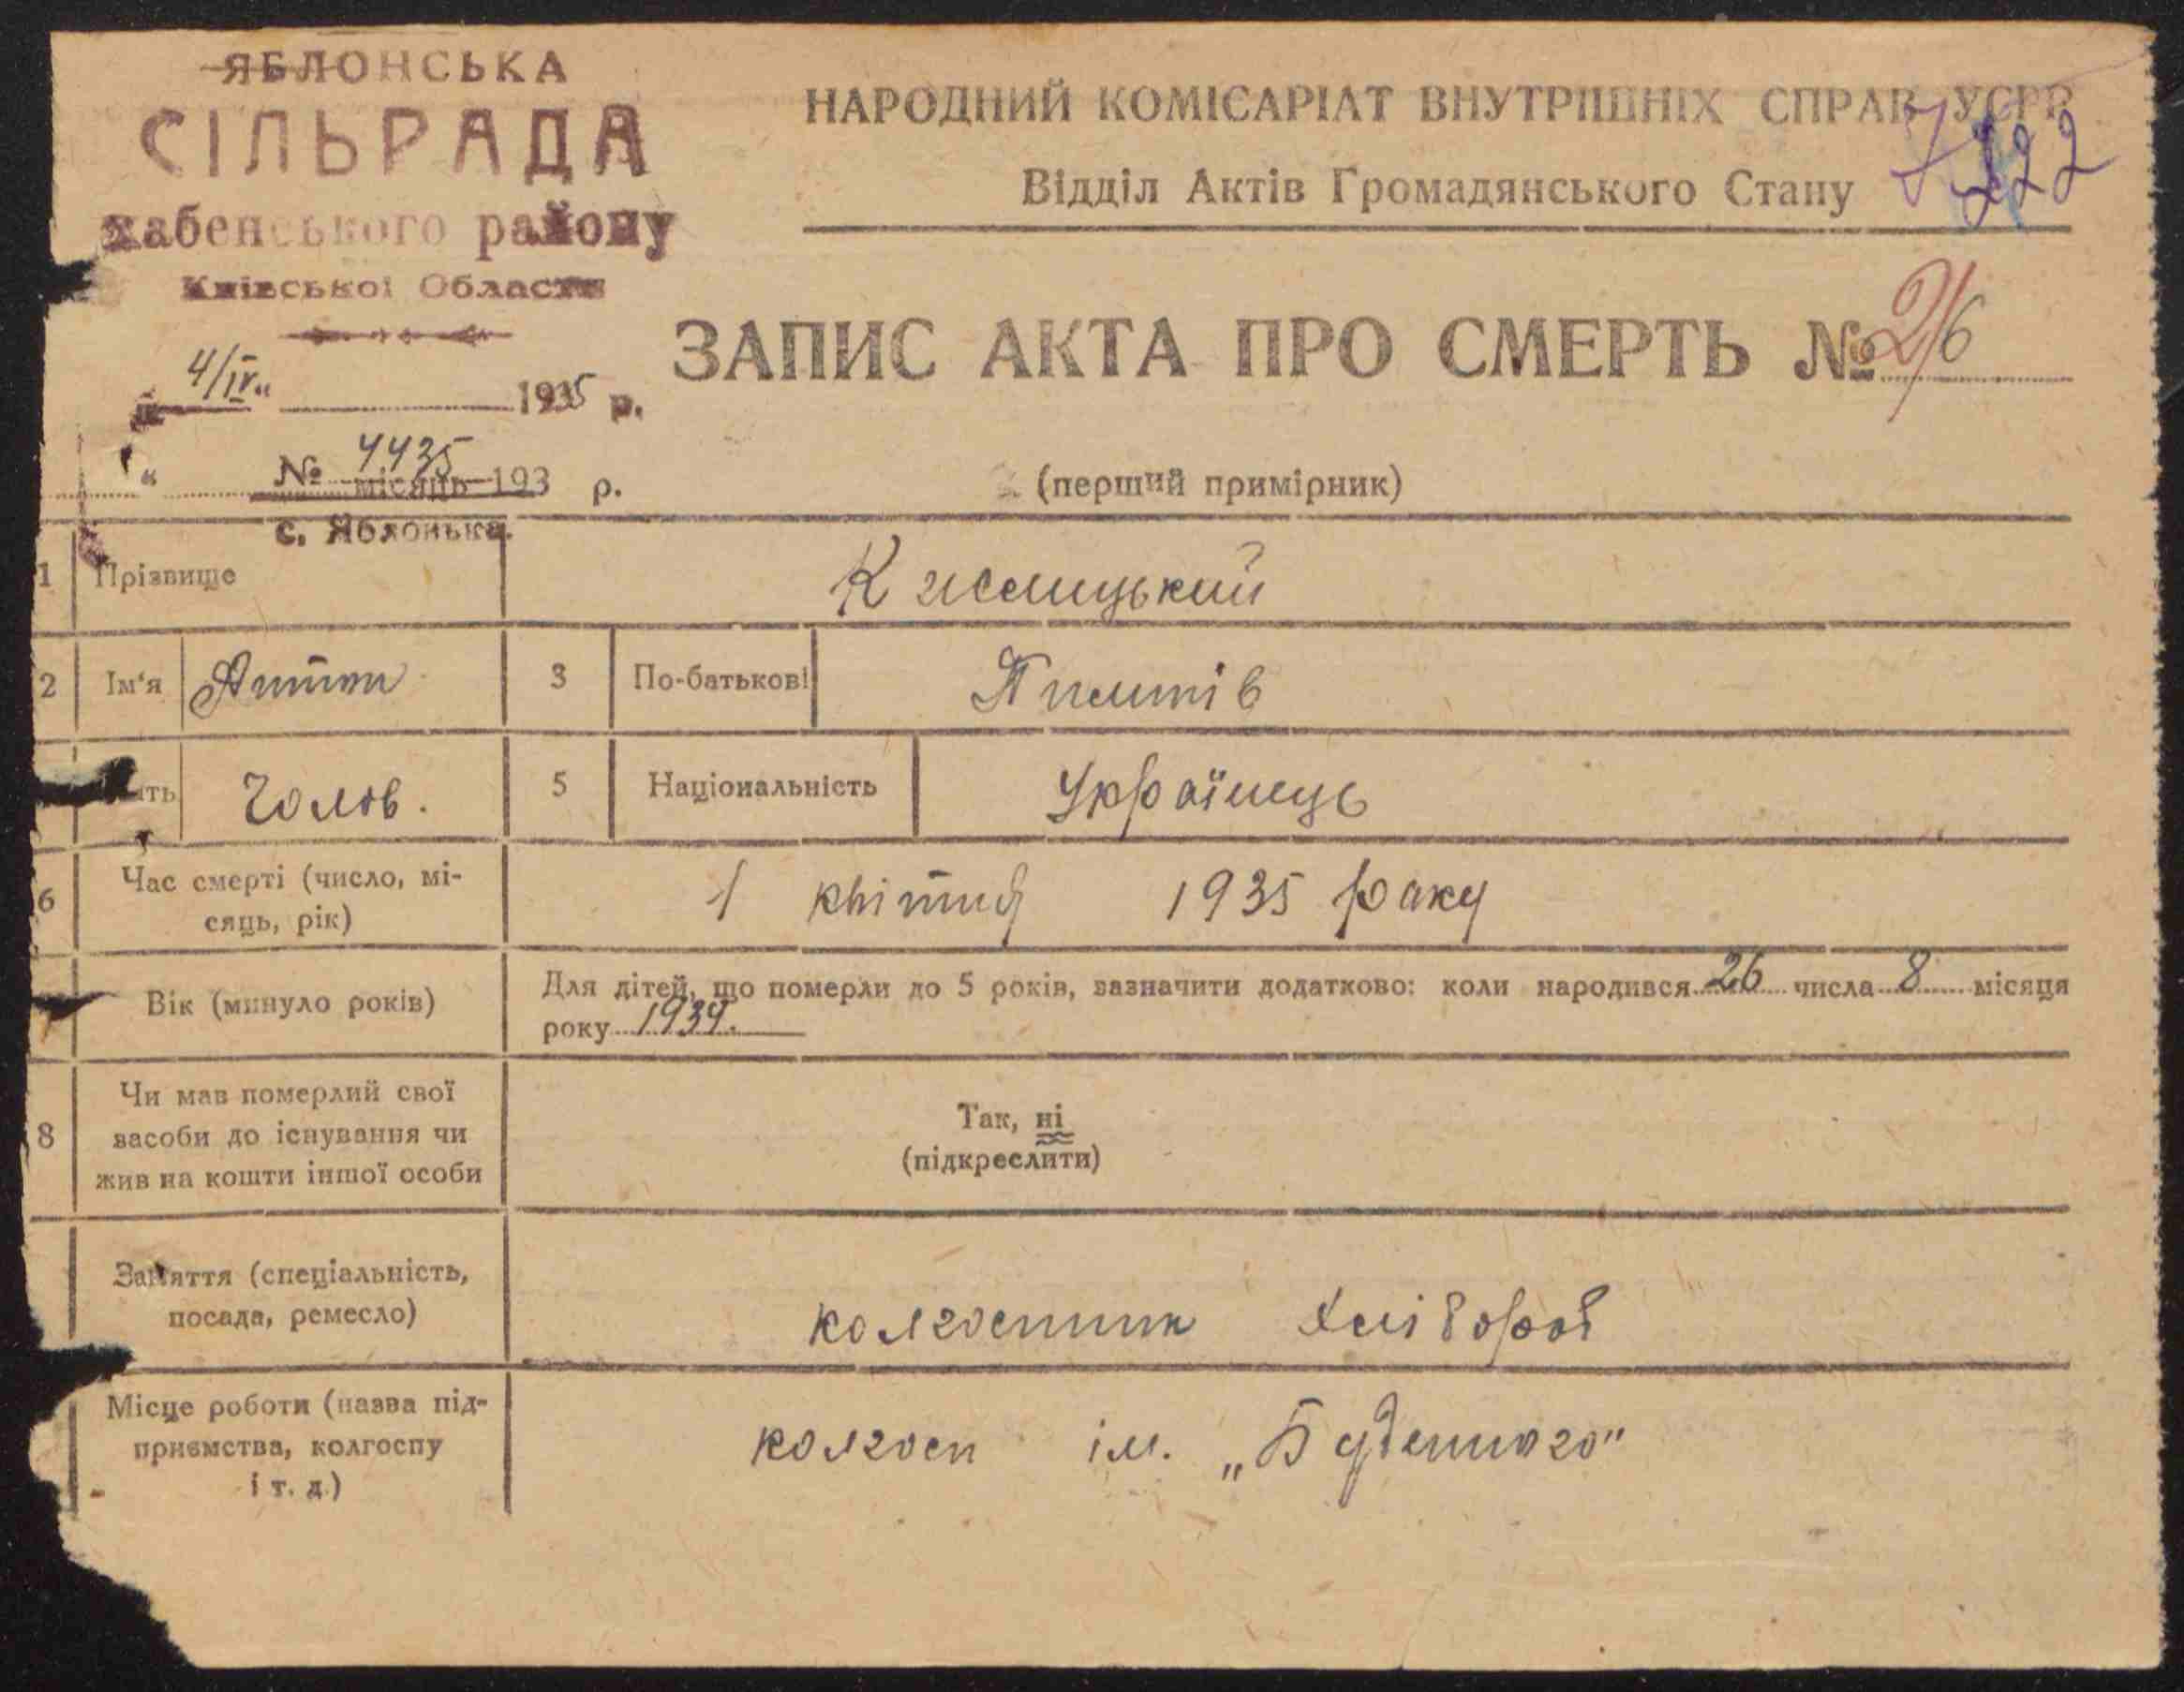 ЯБЛОНСЬКА
СІЛЬРАДА
хабенського району
Київської Області
4/IV 1935 р.
№ 4435
місяць 193 р.
с. Яблонька.
НАРОДНИЙ КОМІСАРІАТ ВНУТРІШНІХ СПРАВ УСРР
Відділ Актів Громадянського Стану
222
ЗАПИС АКТА ПРО СМЕРТЬ № 2/6
(перший примірник)
1 Прізвище
2 Ім'я Антон 3 По-батькові
Чолов. 5 Національність Українець
6 Час смерті (число, мі-
сяць, рік) 1 квітня 1935 року
Вік (минуло років) Для дітей, що померли до 5 років, зазначити додатково: коли народився 26 числа 8 місяця
року 1934.
8 Чи мав померлий свої
засоби до існування чи
жив на кошти іншої особи
Так, ні
(підкреслити)
Заняття (спеціальність,
посада, ремесло) колгоспник хлібороб
Місце роботи (назва під-
приємства, колгоспу
і т. д.) колгосп ім. „Буденного"